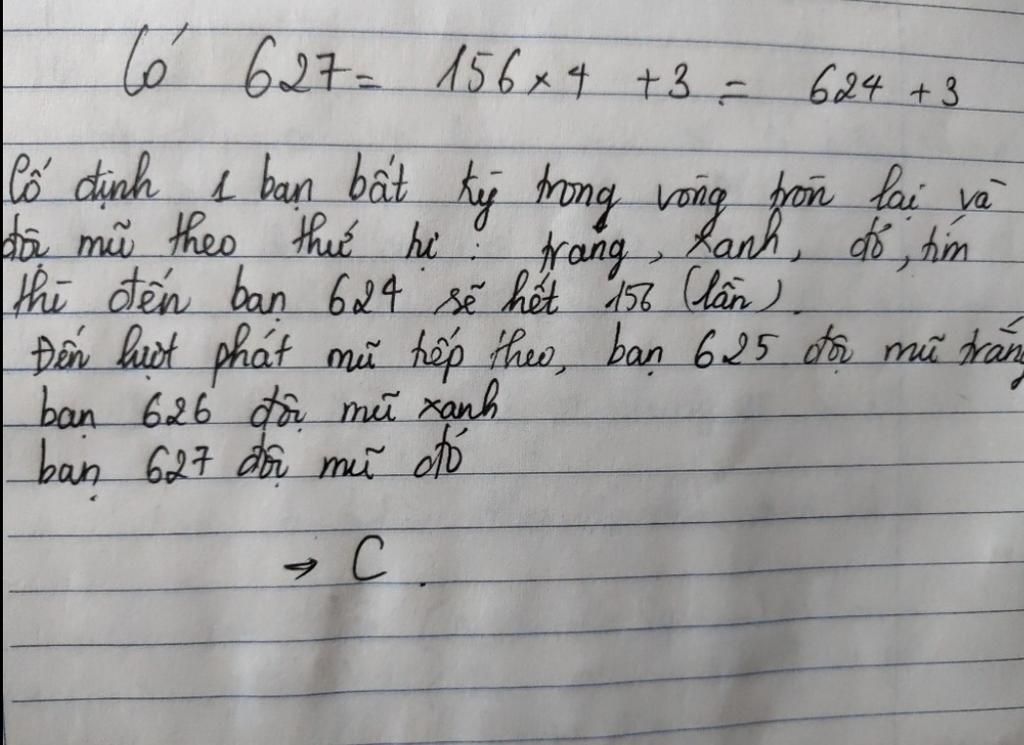 Có 627 = 156 × 4 + 3 = 624 + 3
Cố định 1 bạn bất kỳ trong vòng tròn lại và
đội mũ theo thứ tự : trắng, xanh, đỏ, tím
thì đến bạn 624 sẽ hết 156 (lần).
Đến lượt phát mũ tiếp theo, bạn 625 đội mũ trắng
bạn 626 đội mũ xanh
bạn 627 đội mũ đỏ
→ C.